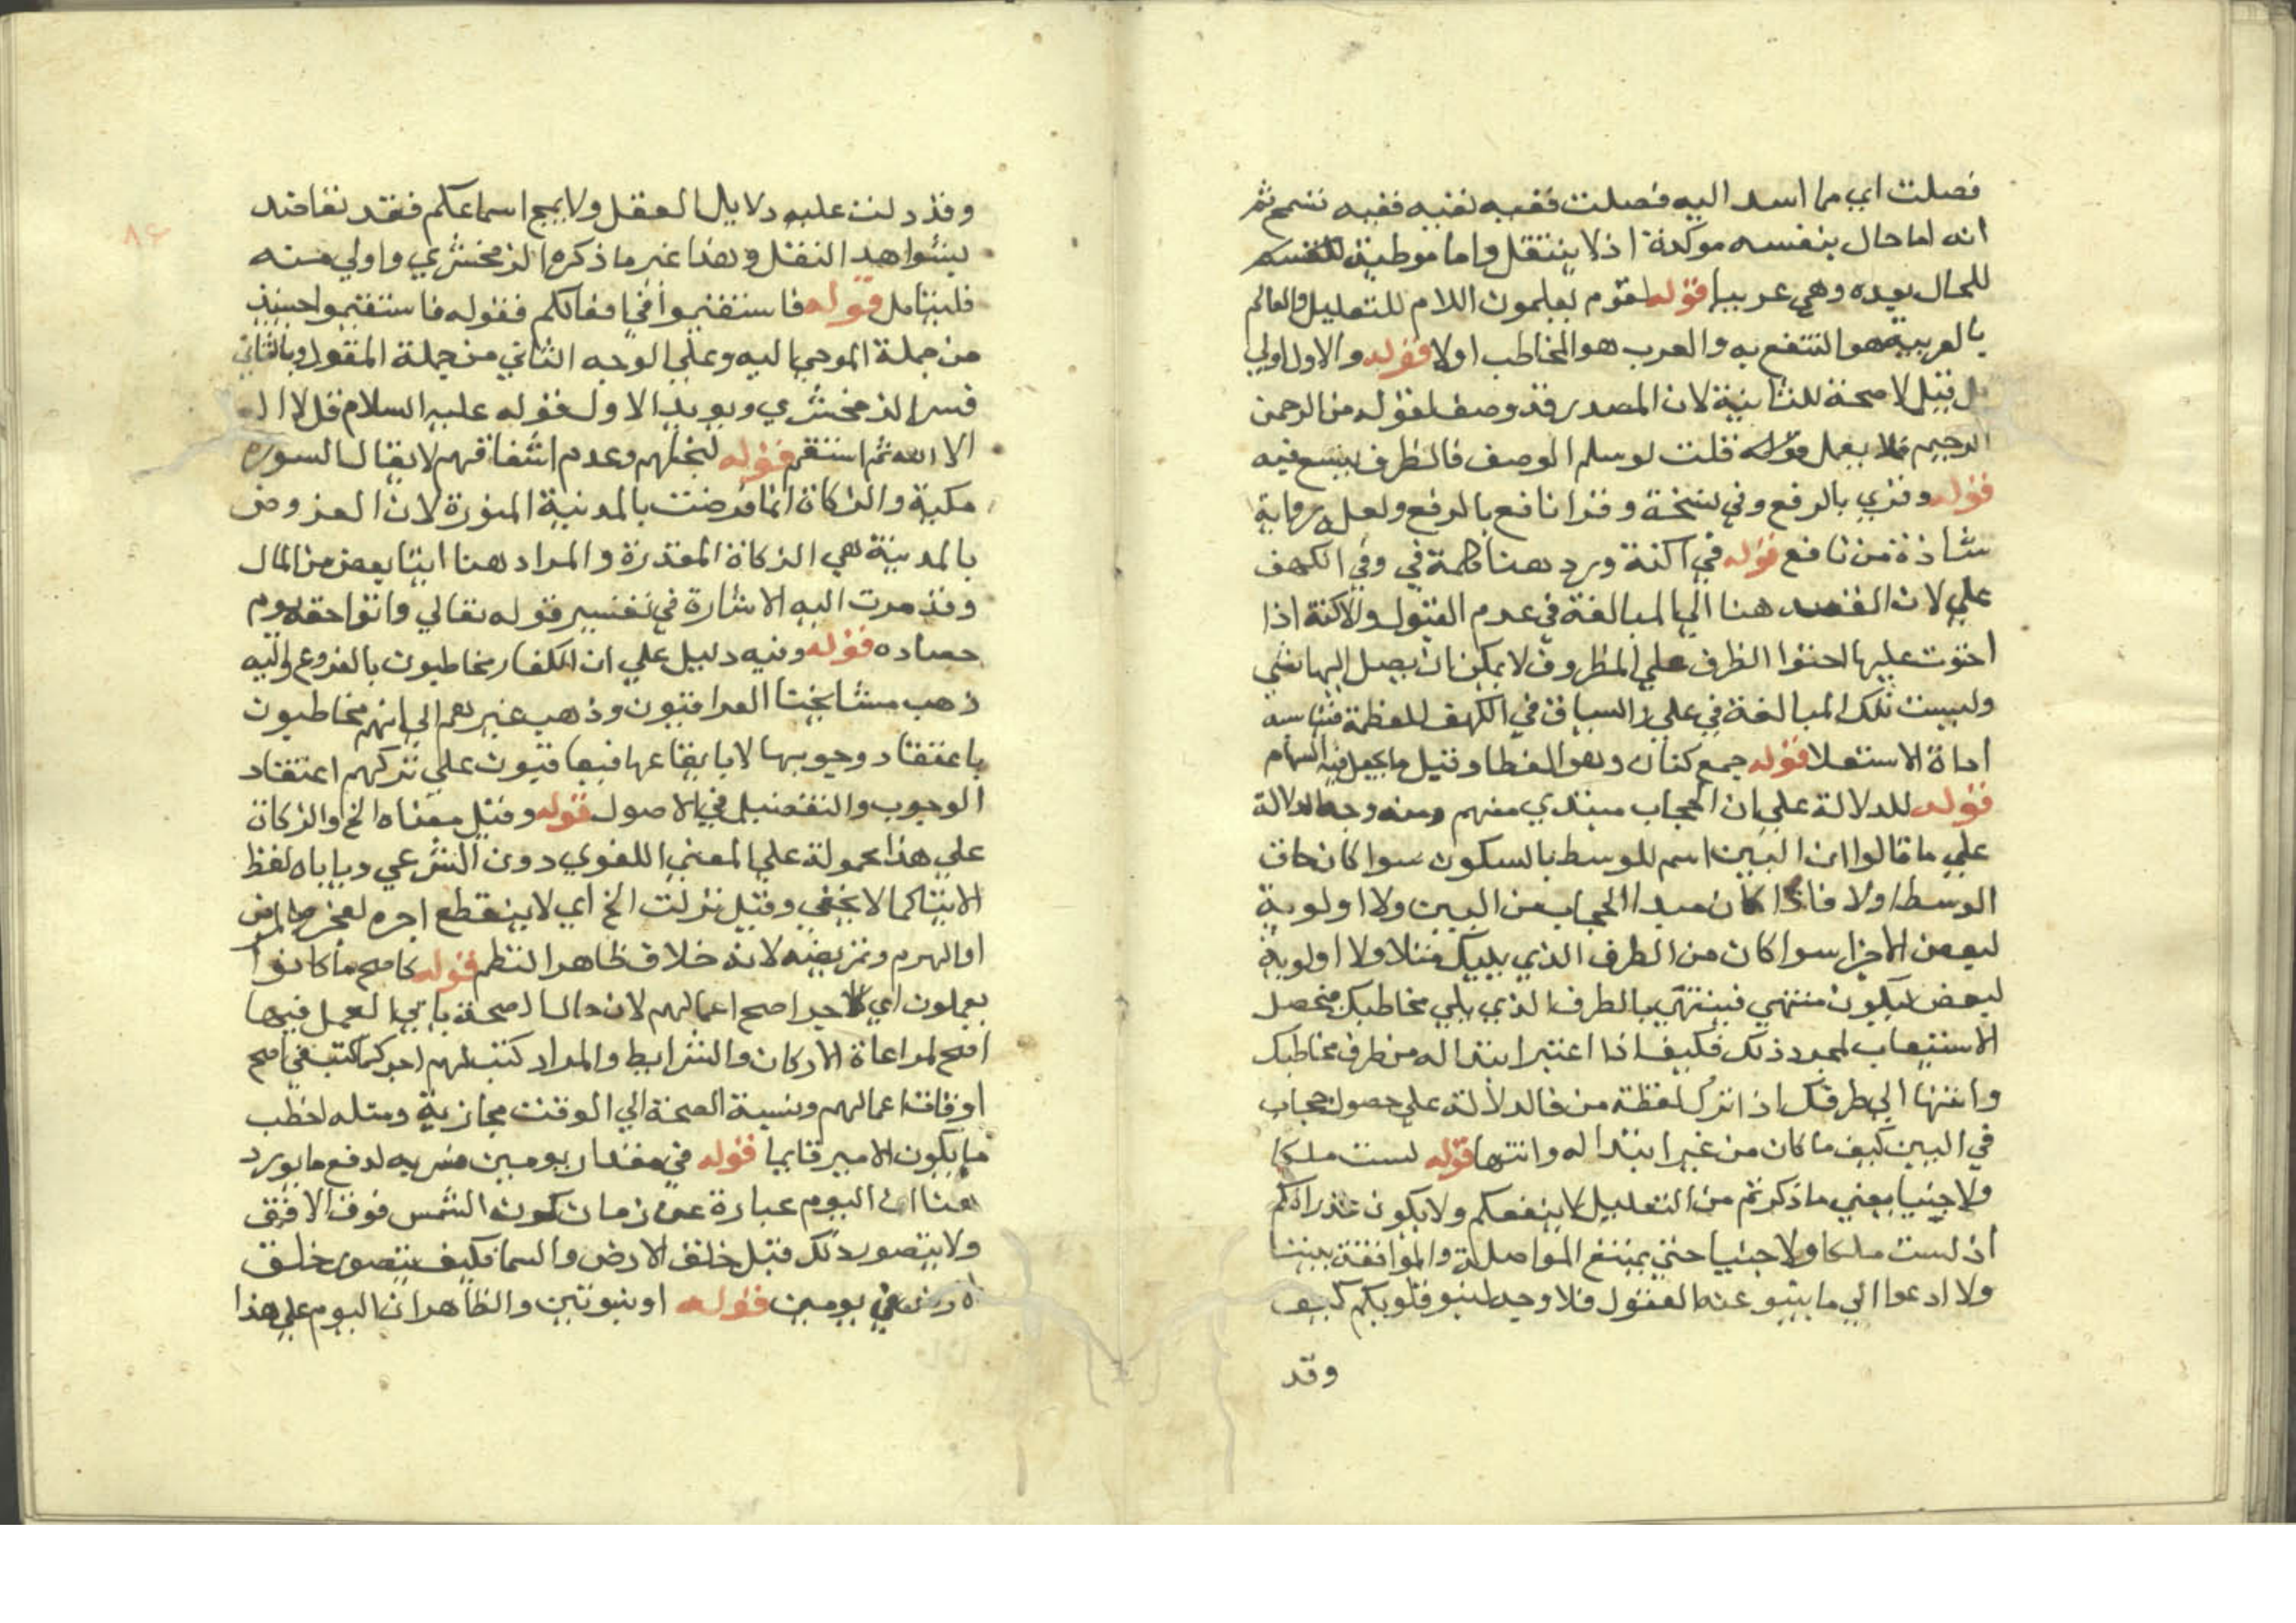 فصلت اي ما اسد اليه فصلت ففيه نفيه ففيه تسمح ثم
انه اما حال بنفسه موكدة اذ لا ينتقل واما موطية
للحال بعده وهي عربيا قوله لقوم يعلمون اللام للتعليل والعالم
بالعربية هو المنتفع به والعرب هو المخاطب اولا قوله والاول اولي
بل قيل لا صحة للثانية لان المصدر قد وصف لقوله من الرحمن
الرحيم فلا يعمل قلت لو سلم الوصف فالظرف يتسع فيه
قوله وقري بالرفع وفي نسخة وقرا نافع بالرفع ولعله رواية
شاذة من نافع قوله في اكنة ورد هنا كلمة في وفي الكهف
علي لان القصد هنا الي المبالغة في عدم القبول والاكنة اذا
احتوت عليها احتوا الظرف علي المظروف لا يمكن ان يصل اليها شي
وليست تلك المبالغة في علي والسياق في الكهف للعظمة فتناسبه
اداة الاستعلا قوله جمع كنان وهو الغطا وقيل ما يجعل فيه السهام
قوله للدلالة علي ان الحجاب مبتدي منهم ومنه وجه الدلالة
علي ما قالوا ان البين اسم للوسط بالسكون سوا كان حاق
الوسط اولا فاذا كان مبدا الحجاب من البين ولا اولوية
لبعض الاجزا سوا كان من الطرف الذي يليك مثلا ولا اولوية
لبعض ليكون منتهي فينتهي بالطرف الذي يلي مخاطبك فحصل
الاستيعاب لمجرد ذلك فكيف اذا اعتبر ابتدا له من طرف مخاطبك
وانتها الي طرفك اذ اترك لفظة من فالدلالة علي حصول حجاب
في البين كيف ما كان من غير ابتدا له وانتها قوله لست ملكا
ولا جنيا يعني ما ذكرتم من التعليل لا ينفعكم ولا يكون عذرا لكم
اذ لست ملكا ولا جنيا حتي يمتنع المواصلة والموافقة بيننا
ولا ادعوا الي ما ينبو عنه العقول فلا وجه لنبو قلوبكم كيف
وقد
وقد دلت عليه دلايل العقل ولا يمج اسماعكم فقد تعاضد
بشواهد النقل وهذا غير ما ذكره الزمخشري واولي منه
فليتامل قوله فاستقيموا في افعالكم فقوله فاستقيموا حينيذ
من جملة الموحي اليه وعلي الوجه الثاني من جملة المقول وبالثاني
فسر الزمخشري ويويد الاول قوله عليه السلام قل لا اله
الا الله ثم استقم قوله لبخلهم وعدم اشفاقهم لا يقال السورة
مكية والزكاة انما فرضت بالمدينة المنورة لان المفروض
بالمدينة هي الزكاة المقدرة والمراد هنا ايتا بعض من المال
وقد مرت اليه الاشارة في تفسير قوله تعالي واتوا حقه يوم
حصاده قوله وفيه دليل علي ان الكفار مخاطبون بالفروع واليه
ذهب مشايخنا العراقيون وذهب غيرهم الي انهم مخاطبون
باعتقاد وجوبها لا بايقاعها فيعاقبون علي تركهم اعتقاد
الوجوب والتفصيل في الاصول قوله وقيل معناه الخ والزكاة
علي هذا محمولة علي المعني اللغوي دون الشرعي وياباه لفظ
الايتا كما لا يخفي وقيل نزلت الخ اي لا ينقطع اجره لعجز والمرض
او الهرم وتمريضه لانه خلاف ظاهر النظم قوله كاصح ما كانوا
يعملون اي كاجر اصح اعمالهم لان حال الصحة ياتي العمل فيها
اصح لمراعاة الاركان والشرايط والمراد كتب لهم اجر كما كتب في اصح
اوقات اعمالهم ونسبة الصحة الي الوقت مجازية ومثله اخطب
ما يكون الامير قايما قوله في مقدار يومين فسر به لدفع ما يورد
هنا ان اليوم عبارة عن زمان كون الشمس فوق الافق
ولا يتصور ذلك قبل خلق الارض والسما فكيف يتصور خلق
الارض في يومين قوله او بنوبتين والظاهر ان اليوم علي هذا